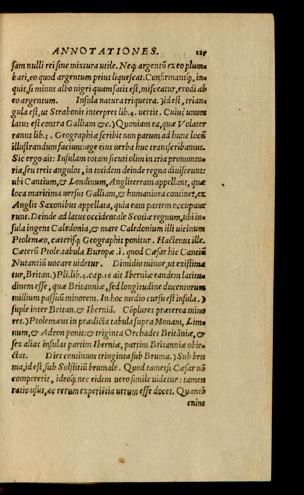 ANNOTATIONES. 127
sam nulli rei sine mixtura utile. Neq; argentū ex eo plum
bari, eo quod argentum prius liquescat. Confirmantq́;, in
quit, si minus albo nigri quam satis est, misceatur, erodi ab
eo argentum. Insula natura triquetra.) id est, trian
gula est, ut Strabonis interpres lib.4. uertit. Cuius unum
latus est contra Galliam &c.) Quoniam ea, quæ Volater
ranus lib.3. Geographiæ scribit non parum ad hunc locū
illustrandum faciunt: age eius uerba huc transcribamus.
Sic ergo ait: Insulam totam sicuti olim in tria promonto
ria, seu treis angulos, in totidem deinde regna diuiserunt:
ubi Cantium, & Londinum, Angliterram appellant, quæ
loca maritima uersus Galliam, & humaniora continet, ex
Anglis Saxonibus appellata, quia eam partem occupaue
runt. Deinde ad latus occidentale Scotiæ regnum, ubi in
sula ingens Caledonia, & mare Caledonium illi uicinum
Ptolemæo, cæterisq́; Geographis ponitur. Hactenus ille.
Cæterū Ptole. tabula Europæ .i. quod Cæsar hic Cantiū
Nutantiū uocare uidetur. Dimidio minor, ut existima
tur, Britan.) Pli.lib.4.cap.16 ait Iberniæ eandem latitu
dinem esse, quæ Britanniæ, sed longitudine ducentorum
millium passuū minorem. In hoc medio cursu est insula.)
suple inter Britan. & Iberniā. Cōplures præterea mino
res.) Ptolemæus in prædicta tabula supra Monam, Lima
num, & Adron ponit: & triginta Orchades Britāniæ, &
sex alias insulas partim Iberniæ, partim Britanniæ obie
ctas. Dies continuos tringinta sub Bruma.) Sub bru
ma, id est, sub Solstitiū brumale. Quod tametsi Cæsar nō
compererit, ideoq́; nec eidem uero simile uidetur: tamen
ratio usus, ac rerum experiētia uerum esse docet. Quanto
enino